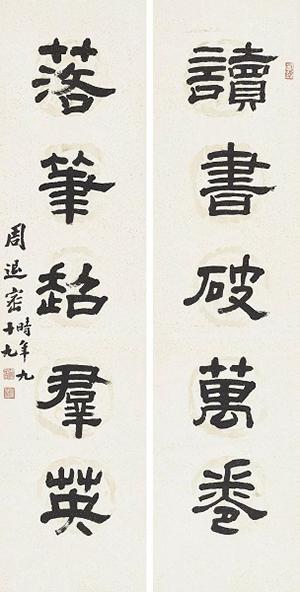 讀書破萬卷
落筆超羣英
周退密
時年九十九